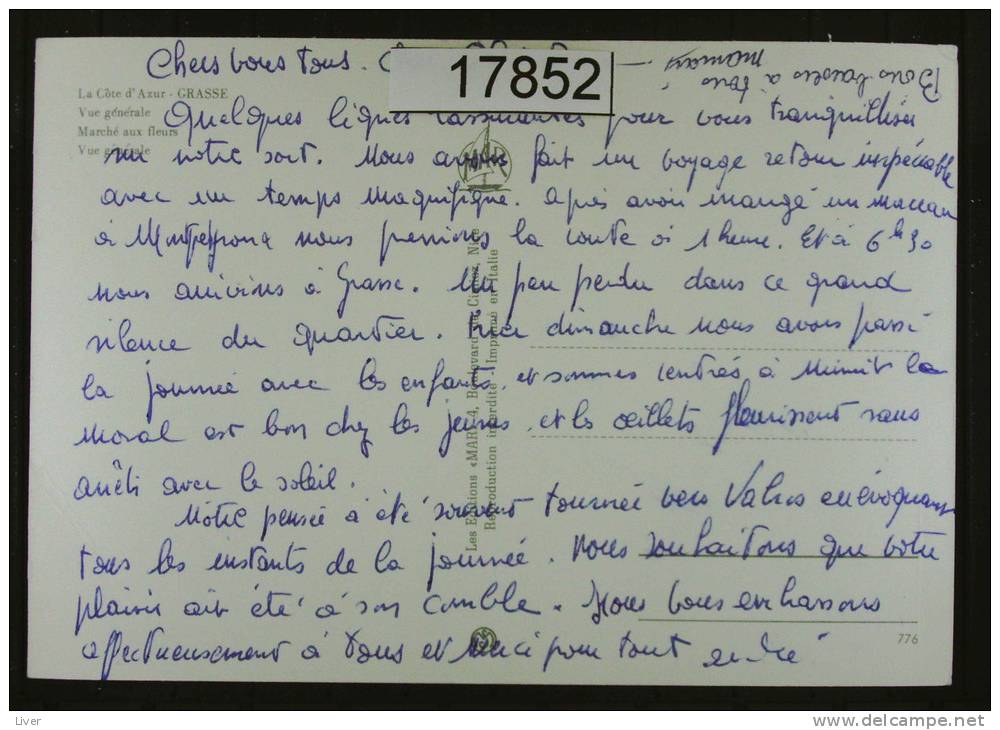 Chers vous tous.
17852
Bons baisers à tous
mamay.
La Côte d'Azur - GRASSE
Vue générale
Marché aux fleurs
Vue générale
Quelques lignes rassurantes pour vous tranquilliser
sur notre sort. Nous avons fait un voyage retour impécable
avec un temps magnifique. Après avoir mangé un morceau
à nous prenions la route à 1 heure. Et à 6h30
nous arrivions à Grasse. Un peu perdu dans ce grand
silence du quartier. Hier dimanche nous avons passé
la journée avec les enfants, et sommes rentrés à Minuit la
moral est bon chez les jeunes, et les œillets fleurissent sans
arrêts avec le soleil.
Notre pensée à été souvent tournée vers Valras en évoquant
tous les instants de la journée. Nous souhaitons que votre
plaisir ait été à son comble. Nous vous embrassons
affectueusement à Tous et merci pour tout andré
Les Editions «MAR» 4, Boulevard de Cimiez, Nice
Reproduction interdite - Imprimé en Italie
776
Liver
www.delcampe.net